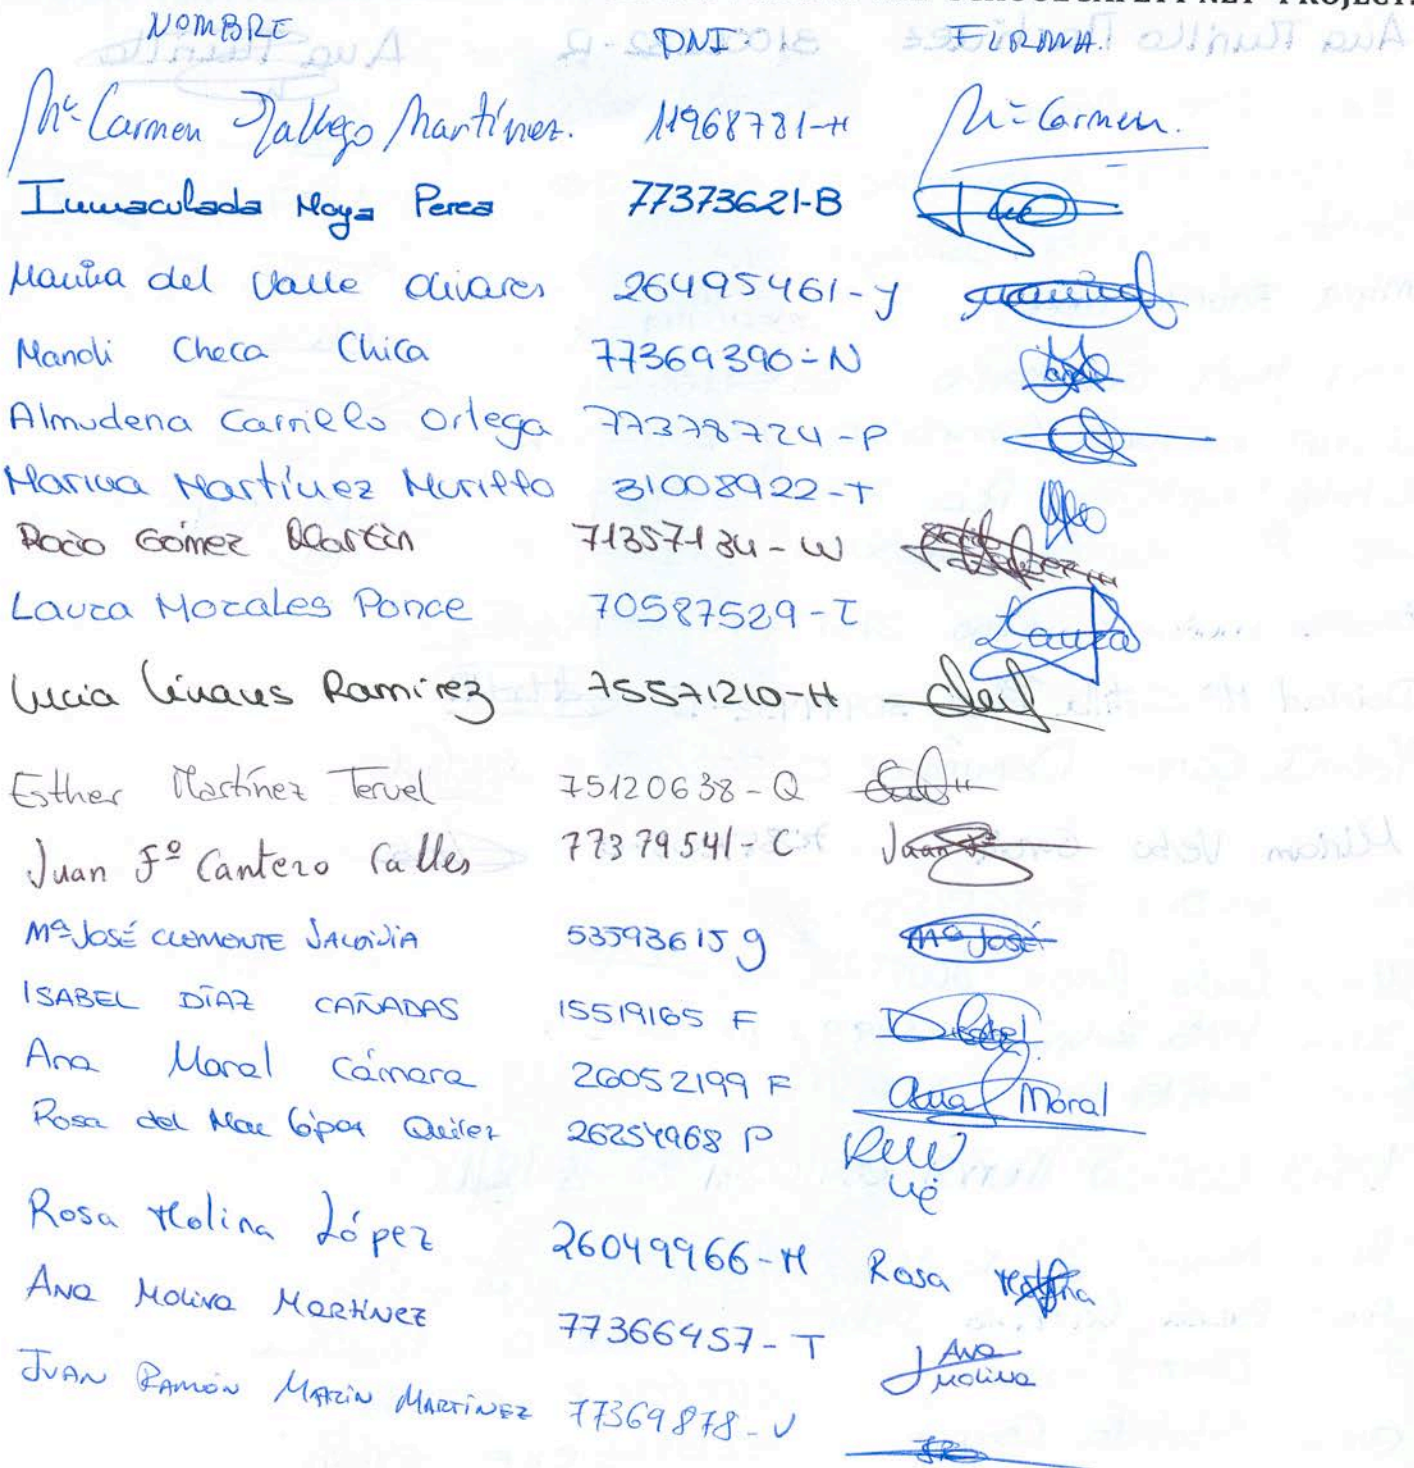 NOMBRE DNI. FIRMA.
Mª Carmen Gallego Martínez. 11968781-H Mª Carmen.
Inmaculada Moya Perea 77373621-B
Marina del Valle Olivares 26495461-Y
Manoli Checa Chica 77369390-N
Almudena Carrillo Ortega 77378724-P
Marina Martínez Murillo 31008922-T
Rocío Gómez Martín 71357134-W
Laura Morales Ponce 70587529-T Laura
Lucía Linares Ramírez 75571210-H
Esther Martínez Teruel 75120638-Q
Juan Fº Cantero Calles 77379541-C Juan Fº
Mª JOSÉ CLEMENTE 53593615 g Mª José
ISABEL DÍAZ CAÑADAS 15519165 F Isabel
Ana Moral Cámara 26052199 F Ana Moral
Rosa del Mar López Quílez 26254968 P
Rosa Molina López 26049966-M Rosa Molina
ANA MOLINA MARTÍNEZ 77366457-T ANA
MOLINA
JUAN RAMÓN MARÍN MARTÍNEZ 77369878-V